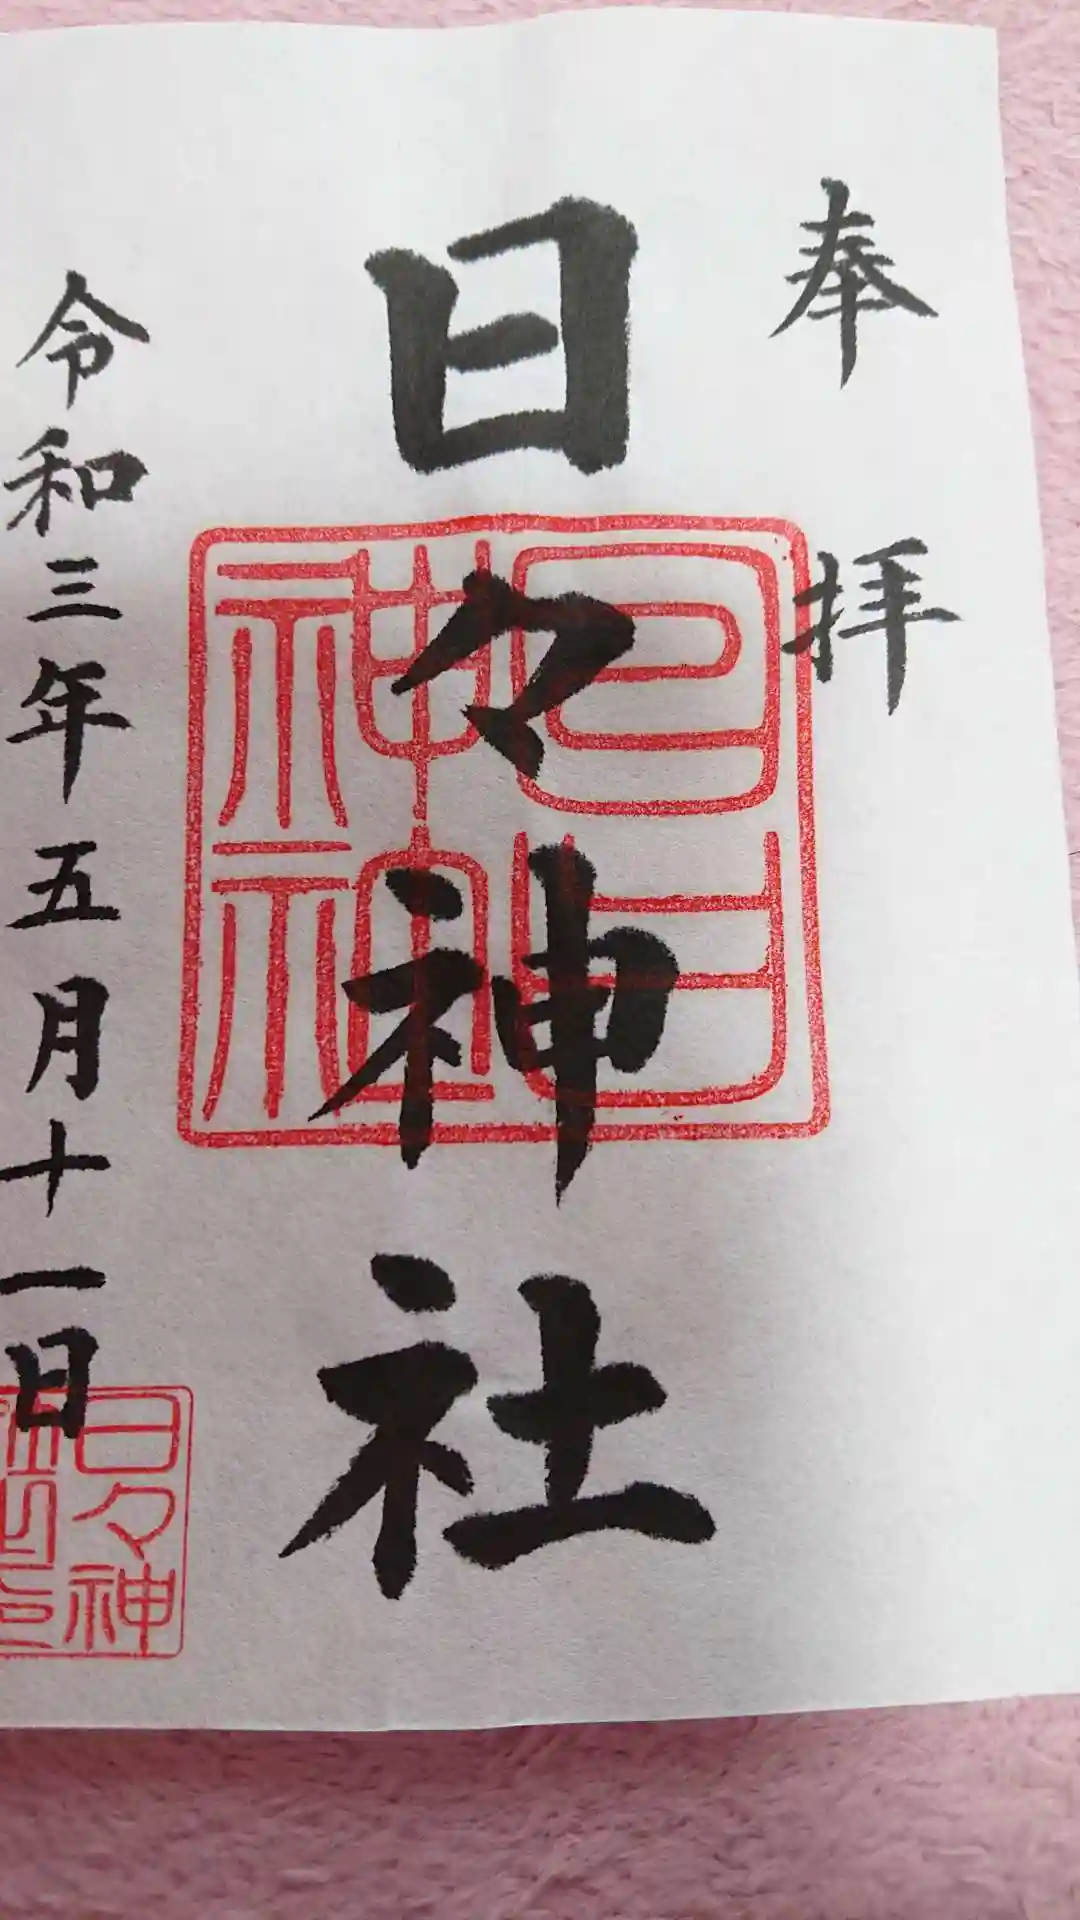 奉拝
日々神社
日日神社
令和三年五月十一日
日々神